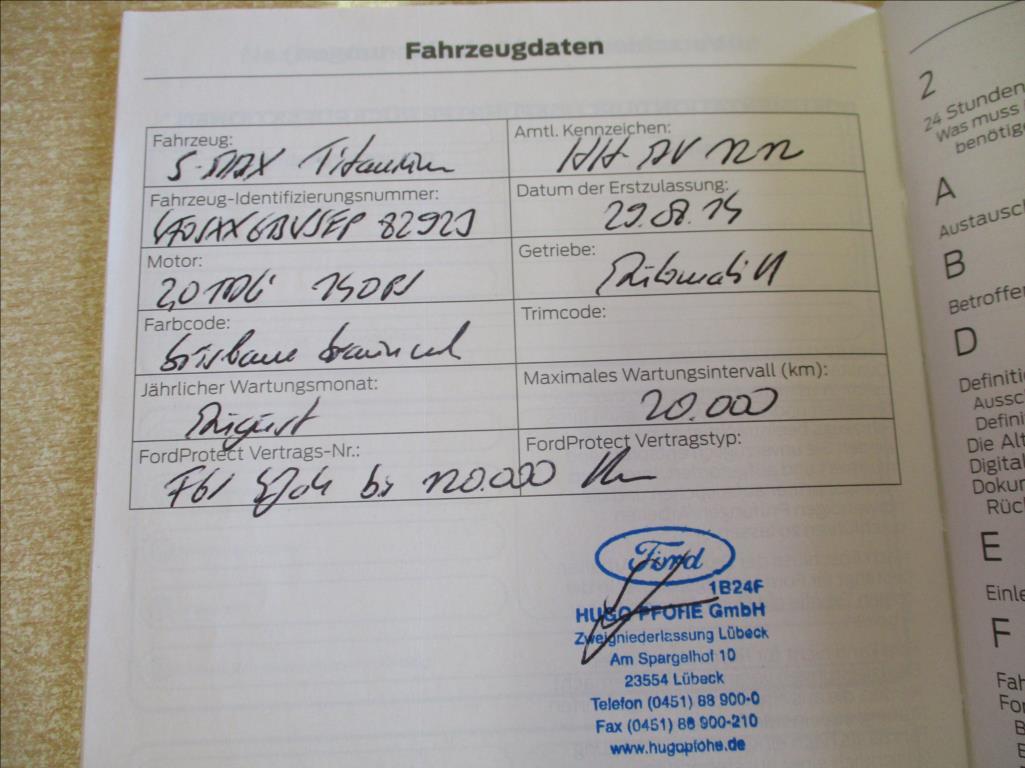 Fahrzeugdaten
Fahrzeug:
S-MAX Titanium
Amtl. Kennzeichen:
HH-AV
Fahrzeug-Identifizierungsnummer:
82929
Datum der Erstzulassung:
29.08.14
Motor:
2,0 TDCi 140 PS
Getriebe:
Automatik
Farbcode:
brisbane braun met
Trimcode:
Jährlicher Wartungsmonat:
August
Maximales Wartungsintervall (km):
20.000
FordProtect Vertrags-Nr.:
FordProtect Vertragstyp:
bis 120.000 Km
Ford
1B24F
HUGO PFOHE GmbH
Zweigniederlassung Lübeck
Am Spargelhof 10
23554 Lübeck
Telefon (0451) 88 900-0
Fax (0451) 88 900-210
www.hugopfohe.de
2
24 Stunden
Was muss
benötig
A
Austausch
B
Betroffe
D
Definiti
Aussc
Defini
Die Alt
Digital
Dokun
Rüc
E
Einle
F
Fah
For